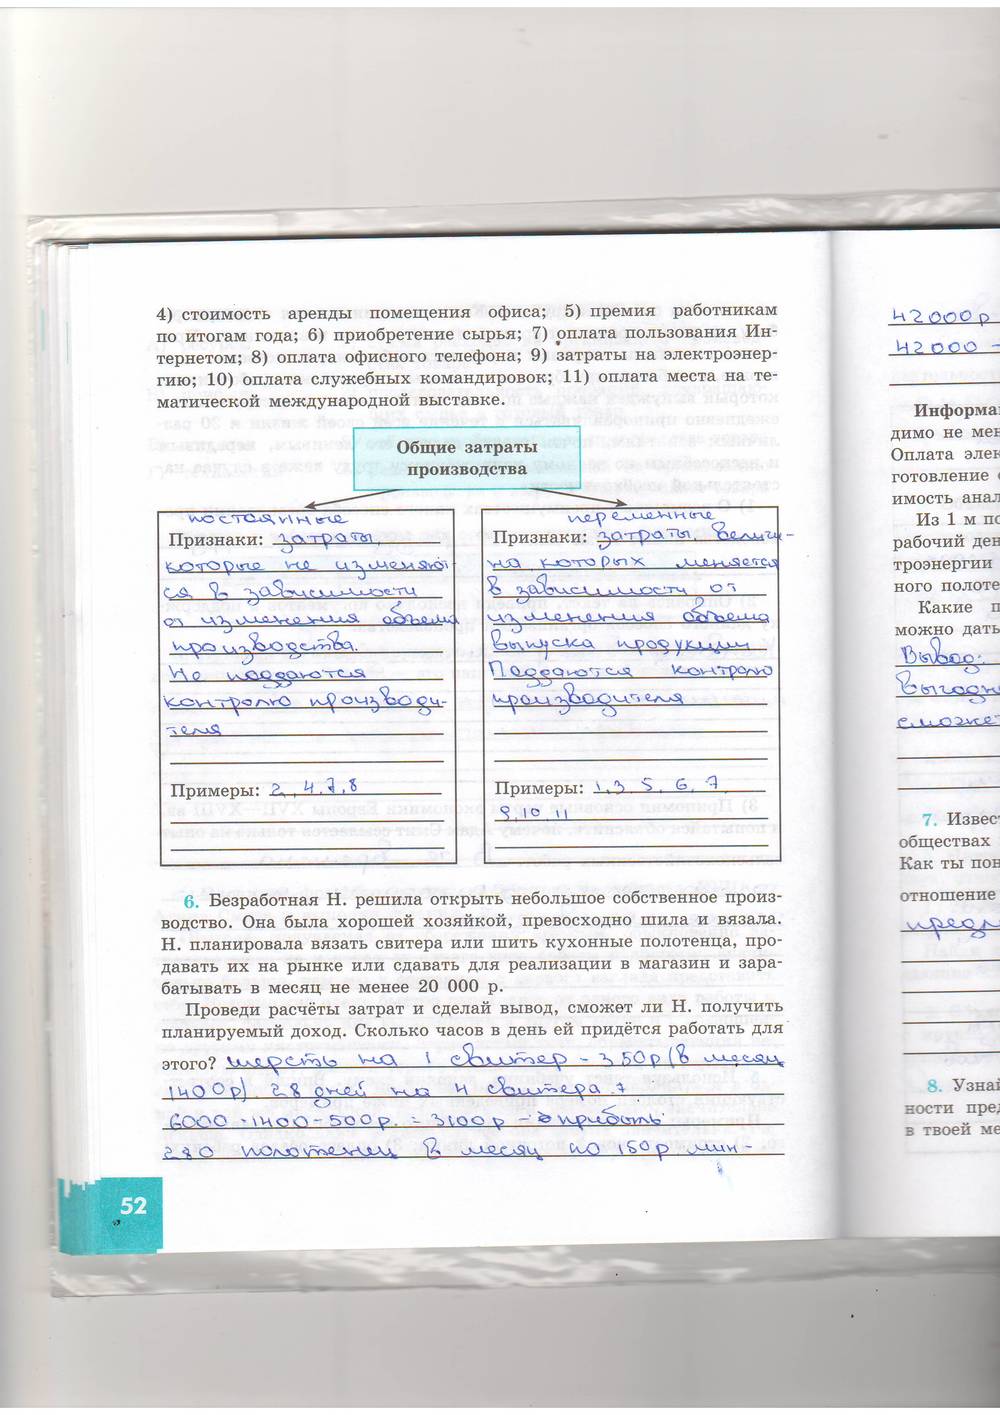 4) стоимость аренды помещения офиса; 5) премия работникам
по итогам года; 6) приобретение сырья; 7) оплата пользования Ин-
тернетом; 8) оплата офисного телефона; 9) затраты на электроэнер-
гию; 10) оплата служебных командировок; 11) оплата места на те-
матической международной выставке.
Общие затраты
производства
постоянные
Признаки: затраты,
которые не изменяют-
ся в зависимости
от изменения объема
производства.
Не поддаются
контролю производи-
теля
Примеры: 2, 4, 7, 8
переменные
Признаки: затраты, величи-
на которых меняется
в зависимости от
изменения объема
выпуска продукции
Поддаются контролю
производителя
Примеры: 1, 3, 5, 6, 7,
9, 10, 11
6. Безработная Н. решила открыть небольшое собственное произ-
водство. Она была хорошей хозяйкой, превосходно шила и вязала.
Н. планировала вязать свитера или шить кухонные полотенца, про-
давать их на рынке или сдавать для реализации в магазин и зара-
батывать в месяц не менее 20 000 р.
Проведи расчёты затрат и сделай вывод, сможет ли Н. получить
планируемый доход. Сколько часов в день ей придётся работать для
этого? шерсть на 1 свитер - 350р (в месяц
1400р). 28 дней на 4 свитера.
6000 - 1400 - 500р. = 3100р - прибыль
280 полотенец в месяц по 150р мин-
52
42000р
42000 -
Информа
димо не мен
Оплата элек
готовление
имость анал
Из 1 м по
рабочий ден
троэнергии
ного полоте
Какие п
можно дать
Вывод:
выгодн
сможет
7. Извест
обществах
Как ты пон
отношение
предп
8. Узнай
ности пред
в твоей ме